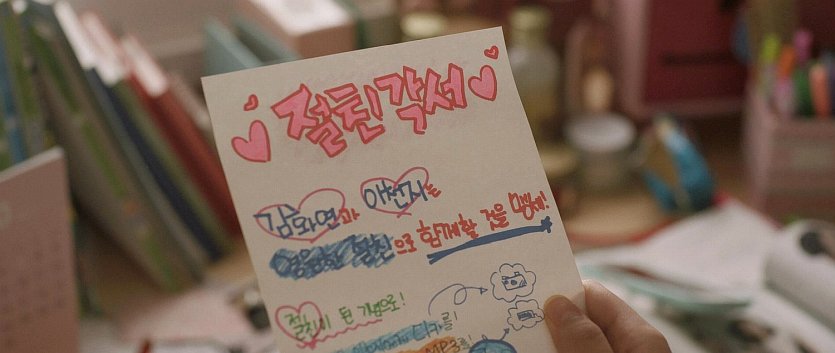 절친 각서
김화연과 아천지는
영원한 절친으로 함께할 것을 맹세!
절친이 된 기념으로!
디카를!
MP3를!